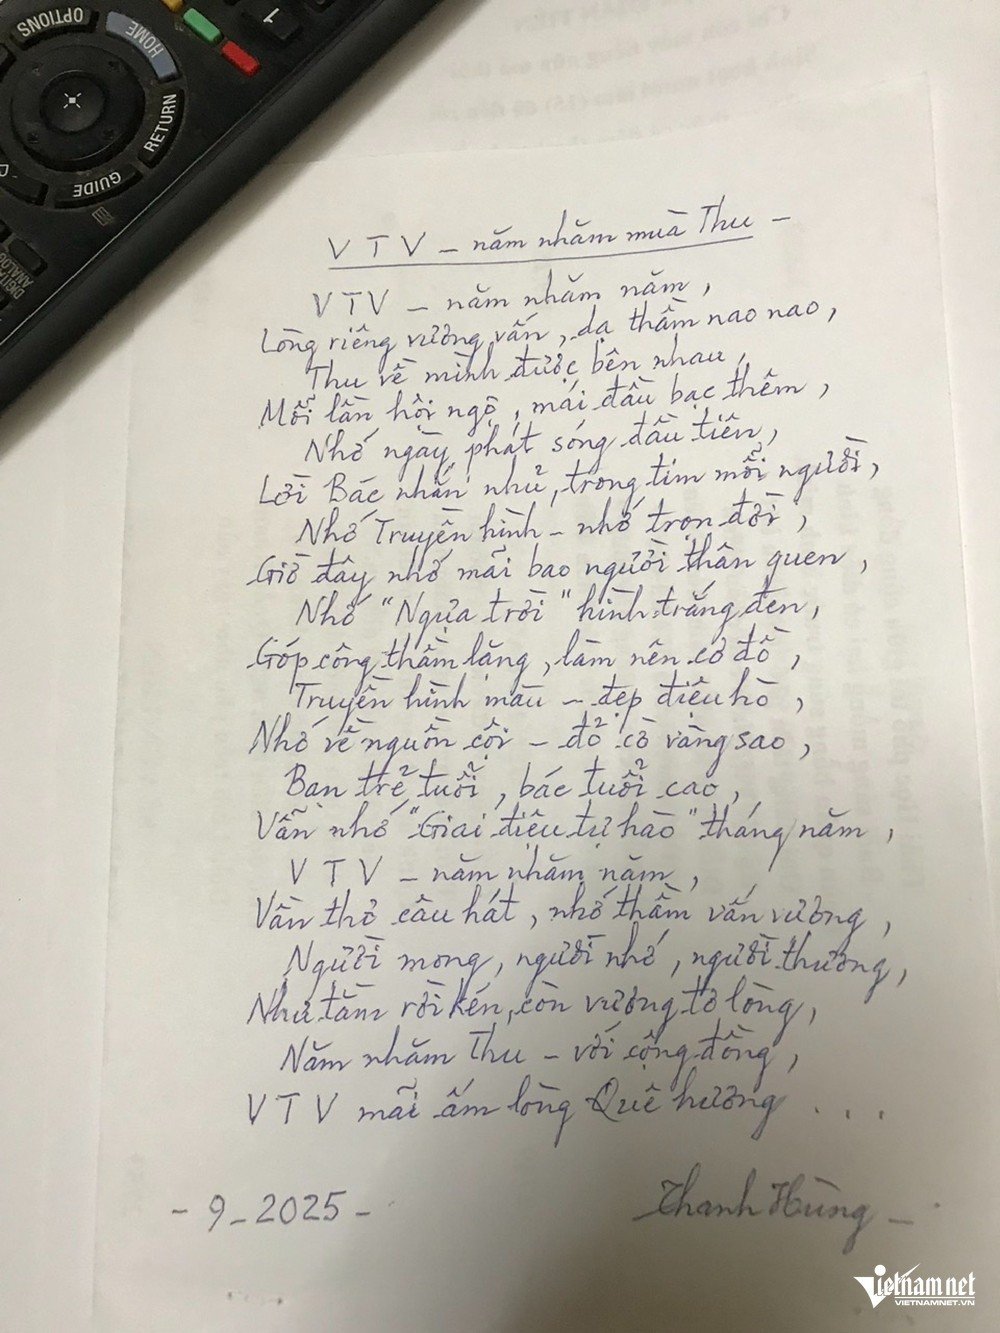 OPTIONS
HOME
1
RETURN
GUIDE
DIGITAL
ANALOG
VTV - năm nhăm mùa Thu -
VTV - năm nhăm năm,
Lòng riêng vương vấn, dạ thầm nao nao,
Thu về mình được bên nhau,
Mỗi lần hội ngộ, mái đầu bạc thêm,
Nhớ ngày phát sóng đầu tiên,
Lời Bác nhắn nhủ, trong tim mỗi người,
Nhớ Truyền hình - nhớ trọn đời,
Giờ đây nhớ mãi bao người thân quen,
Nhớ "Ngựa trời" hình trắng đen,
Góp công thầm lặng, làm nên cơ đồ,
Truyền hình màu - đẹp điệu hò,
Nhớ về nguồn cội - đỏ cờ vàng sao,
Bạn trẻ tuổi, bác tuổi cao,
Vẫn nhớ "Giai điệu tự hào" tháng năm,
VTV - năm nhăm năm,
Vần thơ câu hát, nhớ thầm vấn vương,
Người mong, người nhớ, người thương,
Như tằm rời kén, còn vương tơ lòng,
Năm nhăm Thu - với cộng đồng,
VTV mãi ấm lòng Quê hương ...
- 9 - 2025 -
Thanh Hùng -
Vietnamnet
VIETNAMNET.VN